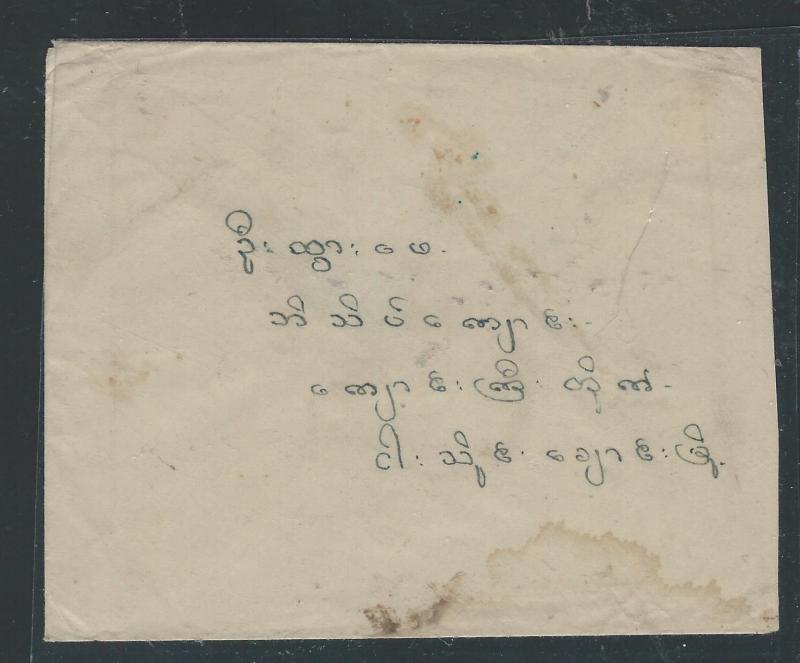 ဦးထွားဖေ
ဘိသိပ်ကျောင်း
ကျောင်းကြီးတိုက်
ငါးသိုင်းချောင်းမြို့